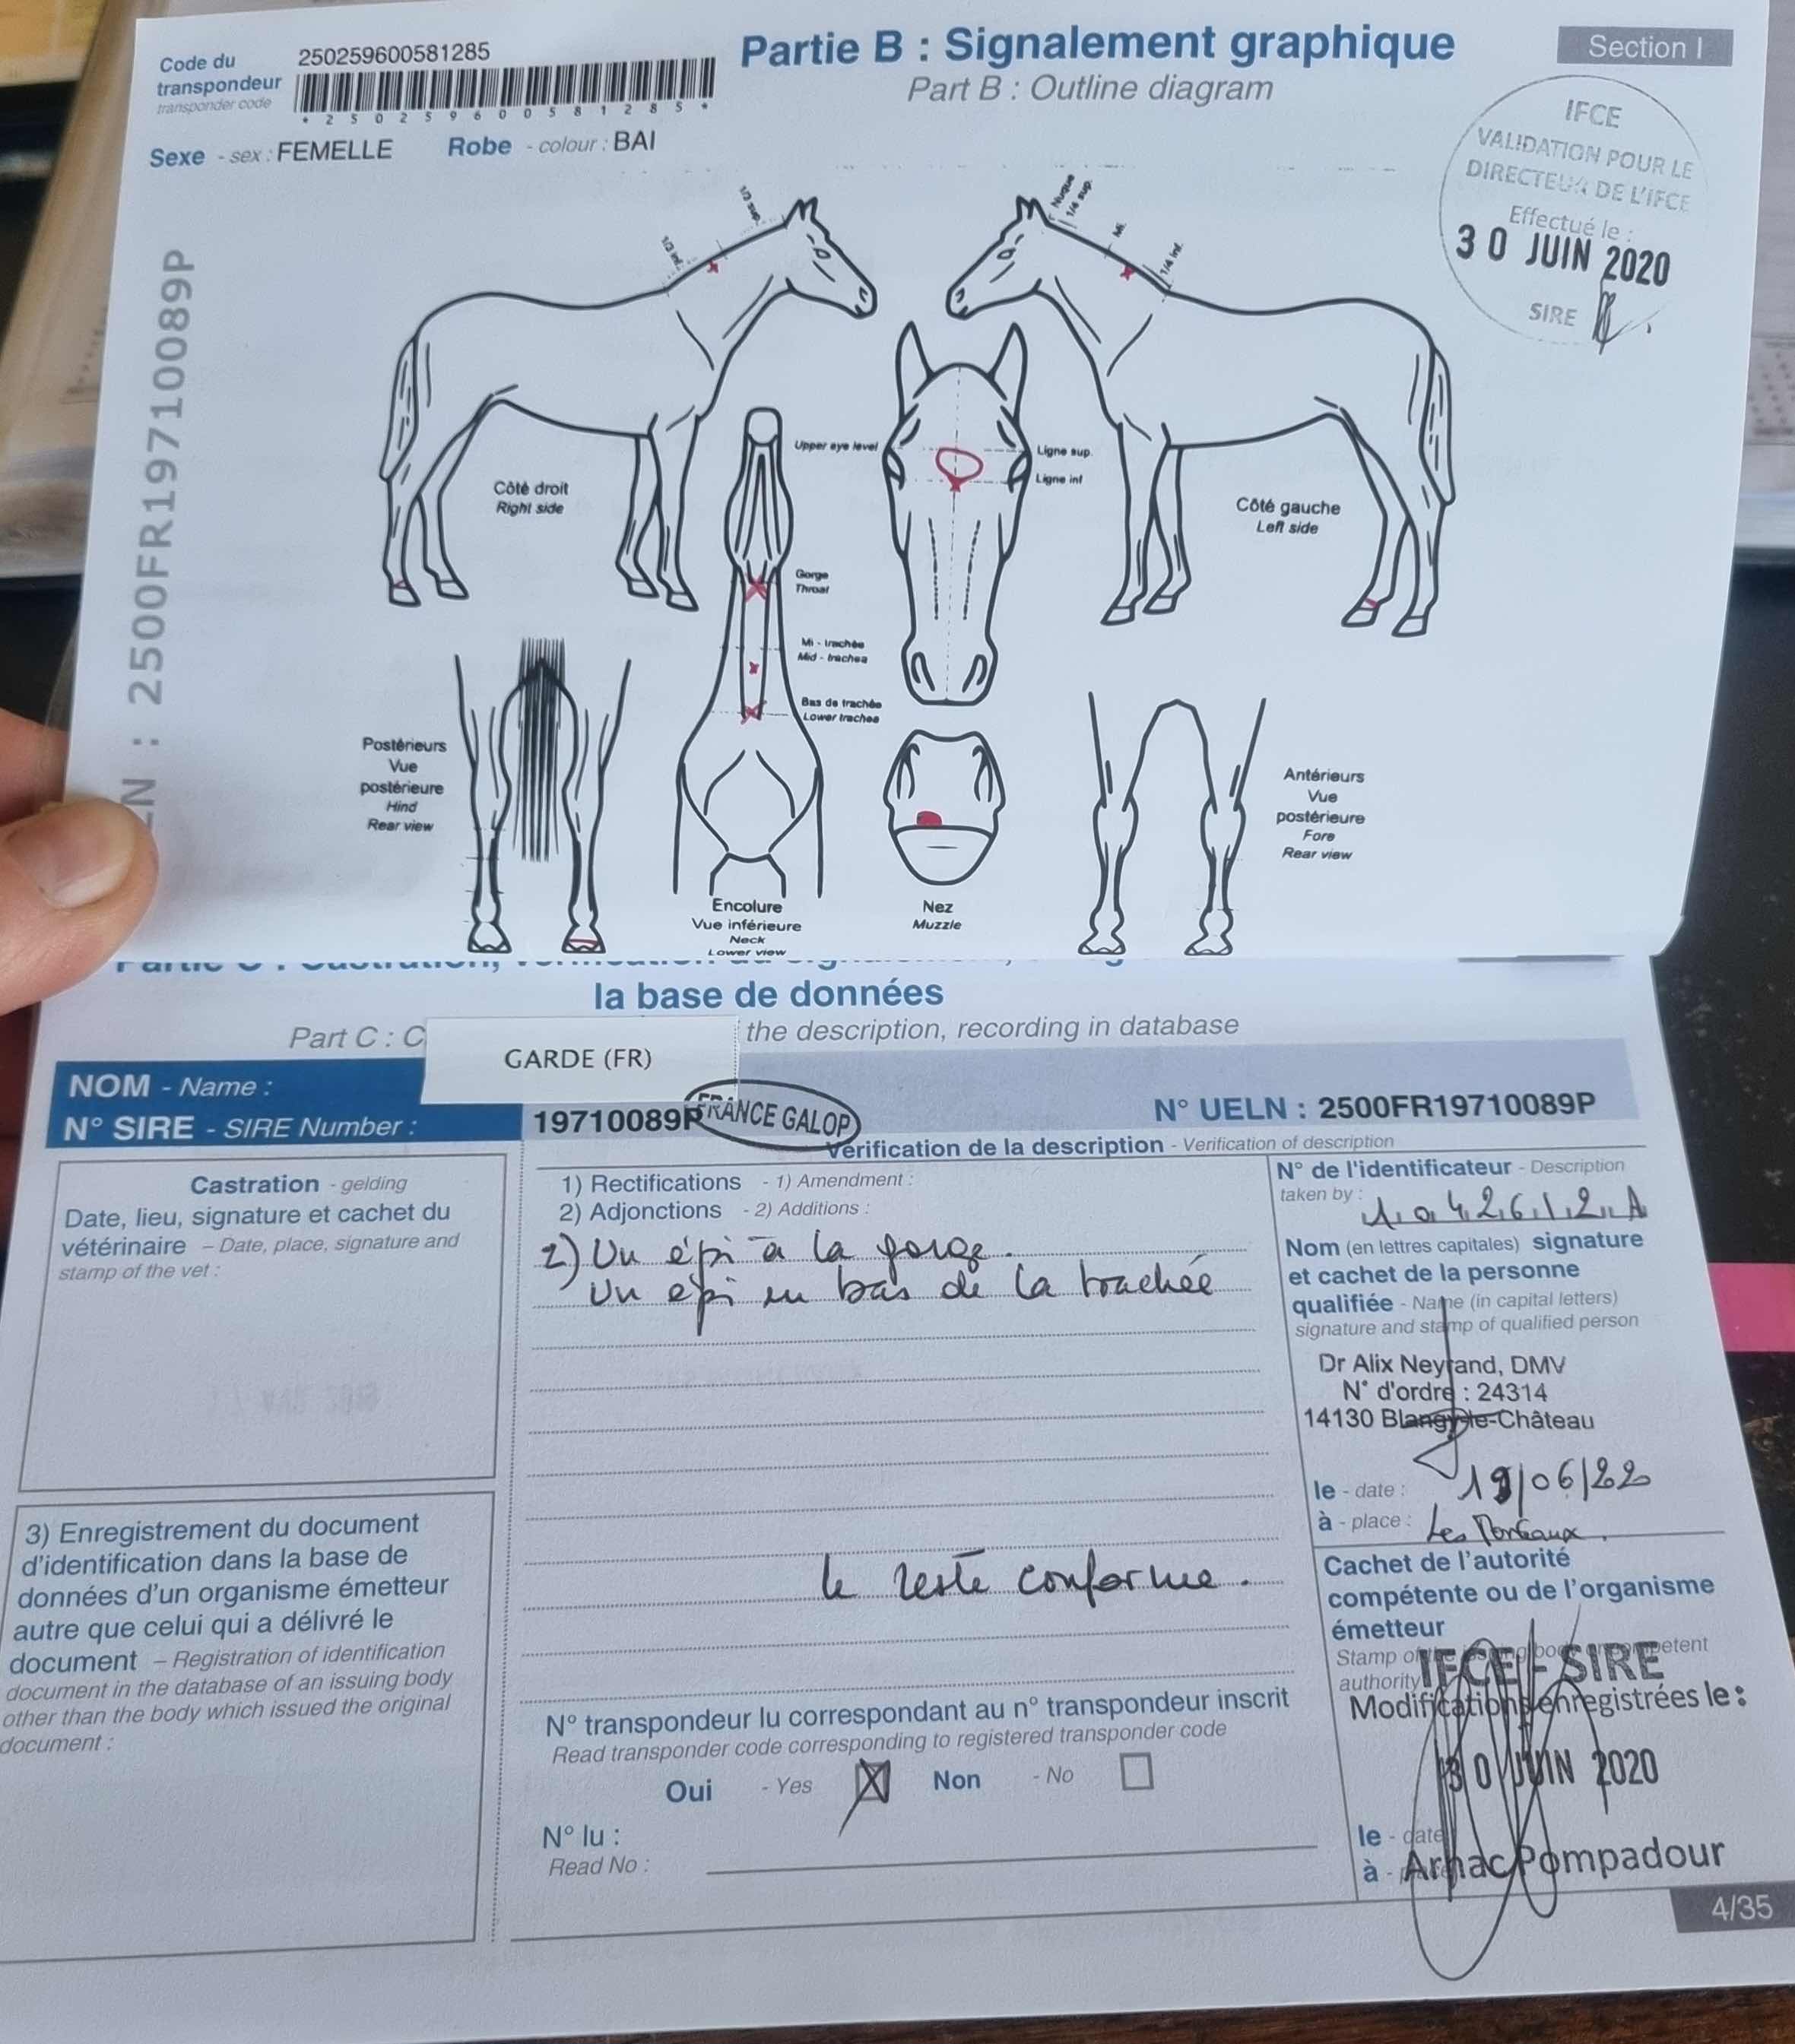 Code du
transpondeur
transponder code
250259600581285
* 2 5 0 2 5 9 6 0 0 5 8 1 2 8 5 *
Partie B : Signalement graphique
Part B : Outline diagram
Section I
Sexe - sex : FEMELLE
Robe - colour : BAI
IFCE
VALIDATION POUR LE
DIRECTEUR DE L'IFCE
Effectué le :
30 JUIN 2020
SIRE
LN : 2500FR19710089P
1/3 sup.
1/3 inf.
Nuque
1/4 sup.
Mi.
1/4 inf.
Upper eye level
Ligne sup.
Ligne inf
Côté droit
Right side
Côté gauche
Left side
Gorge
Throat
Mi - trachée
Mid - trachea
Bas de trachée
Lower trachea
Postérieurs
Vue
postérieure
Hind
Rear view
Antérieurs
Vue
postérieure
Fore
Rear view
Encolure
Vue inférieure
Neck
Lower view
Nez
Muzzle
la base de données
Part C : C
the description, recording in database
GARDE (FR)
NOM - Name :
N° SIRE - SIRE Number :
19710089P
FRANCE GALOP
N° UELN : 2500FR19710089P
Vérification de la description - Verification of description
Castration - gelding
Date, lieu, signature et cachet du
vétérinaire – Date, place, signature and
stamp of the vet :
1) Rectifications - 1) Amendment :
2) Adjonctions - 2) Additions :
2) Un épi à la gorge.
Un épi en bas de la trachée
le reste conforme.
N° de l'identificateur - Description
taken by :
Nom (en lettres capitales) signature
et cachet de la personne
qualifiée - Name (in capital letters)
signature and stamp of qualified person
Dr Alix Neyrand, DMV
N° d'ordre : 24314
14130 Blangy-le-Château
le - date : 19/06/22
à - place : Les
Cachet de l'autorité
compétente ou de l'organisme
émetteur
Stamp of
authority
IFCE - SIRE
Modifications enregistrées le :
30 JUIN 2020
le - date
à -
Arnac Pompadour
3) Enregistrement du document
d'identification dans la base de
données d'un organisme émetteur
autre que celui qui a délivré le
document – Registration of identification
document in the database of an issuing body
other than the body which issued the original
document :
N° transpondeur lu correspondant au n° transpondeur inscrit
Read transponder code corresponding to registered transponder code
Oui - Yes
Non - No
N° lu :
Read No :
4/35